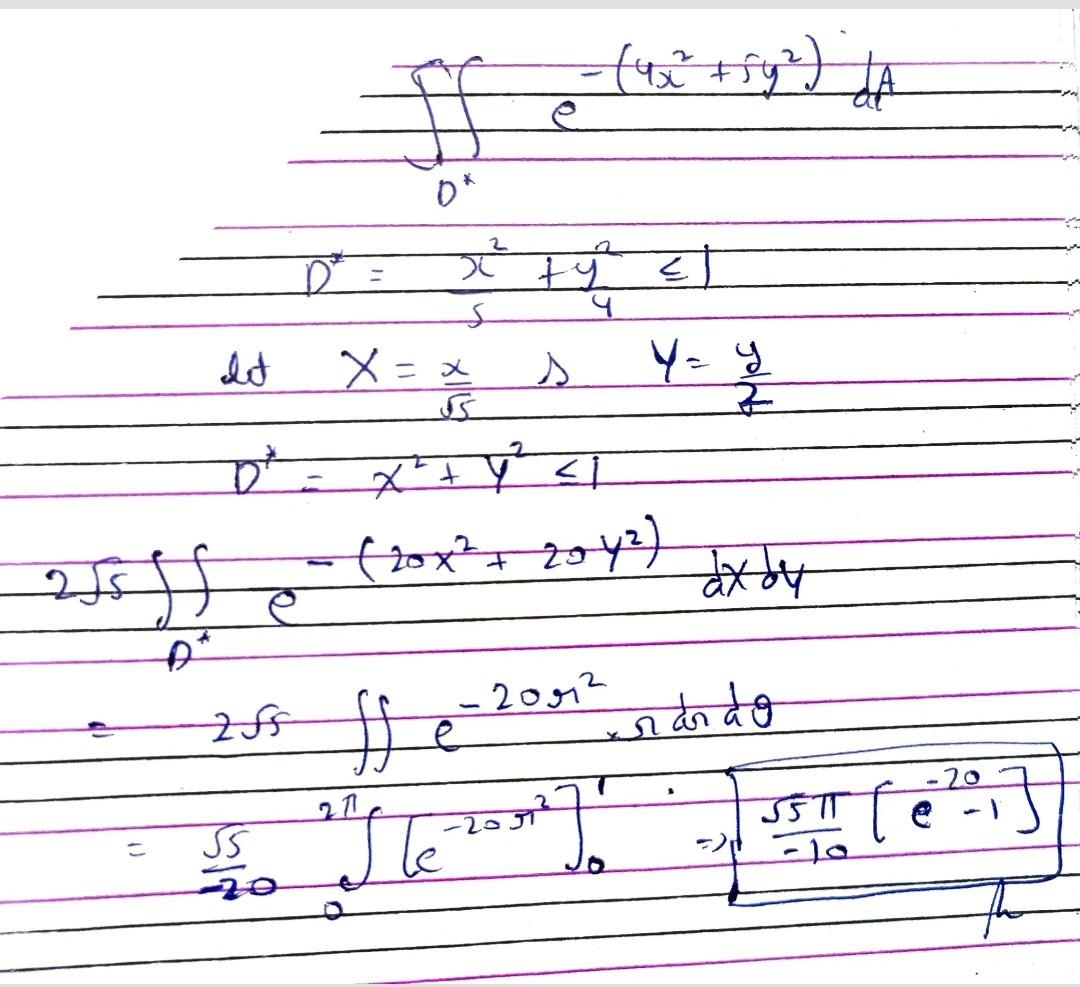 ∬_{D*} e^{-(4x² + 5y²)} dA
D* = x²/5 + y²/4 ≤ 1
let X = x/√5 , Y = y/2
D* = X² + Y² ≤ 1
2√5 ∬_{D*} e^{-(20X² + 20Y²)} dX dY
= 2√5 ∬ e^{-20r²} × r dr dθ
= √5/-20 ∫_0^{2π} [e^{-20r²}]_0^1 . ⇒ √5π/-10 [e^{-20} - 1]